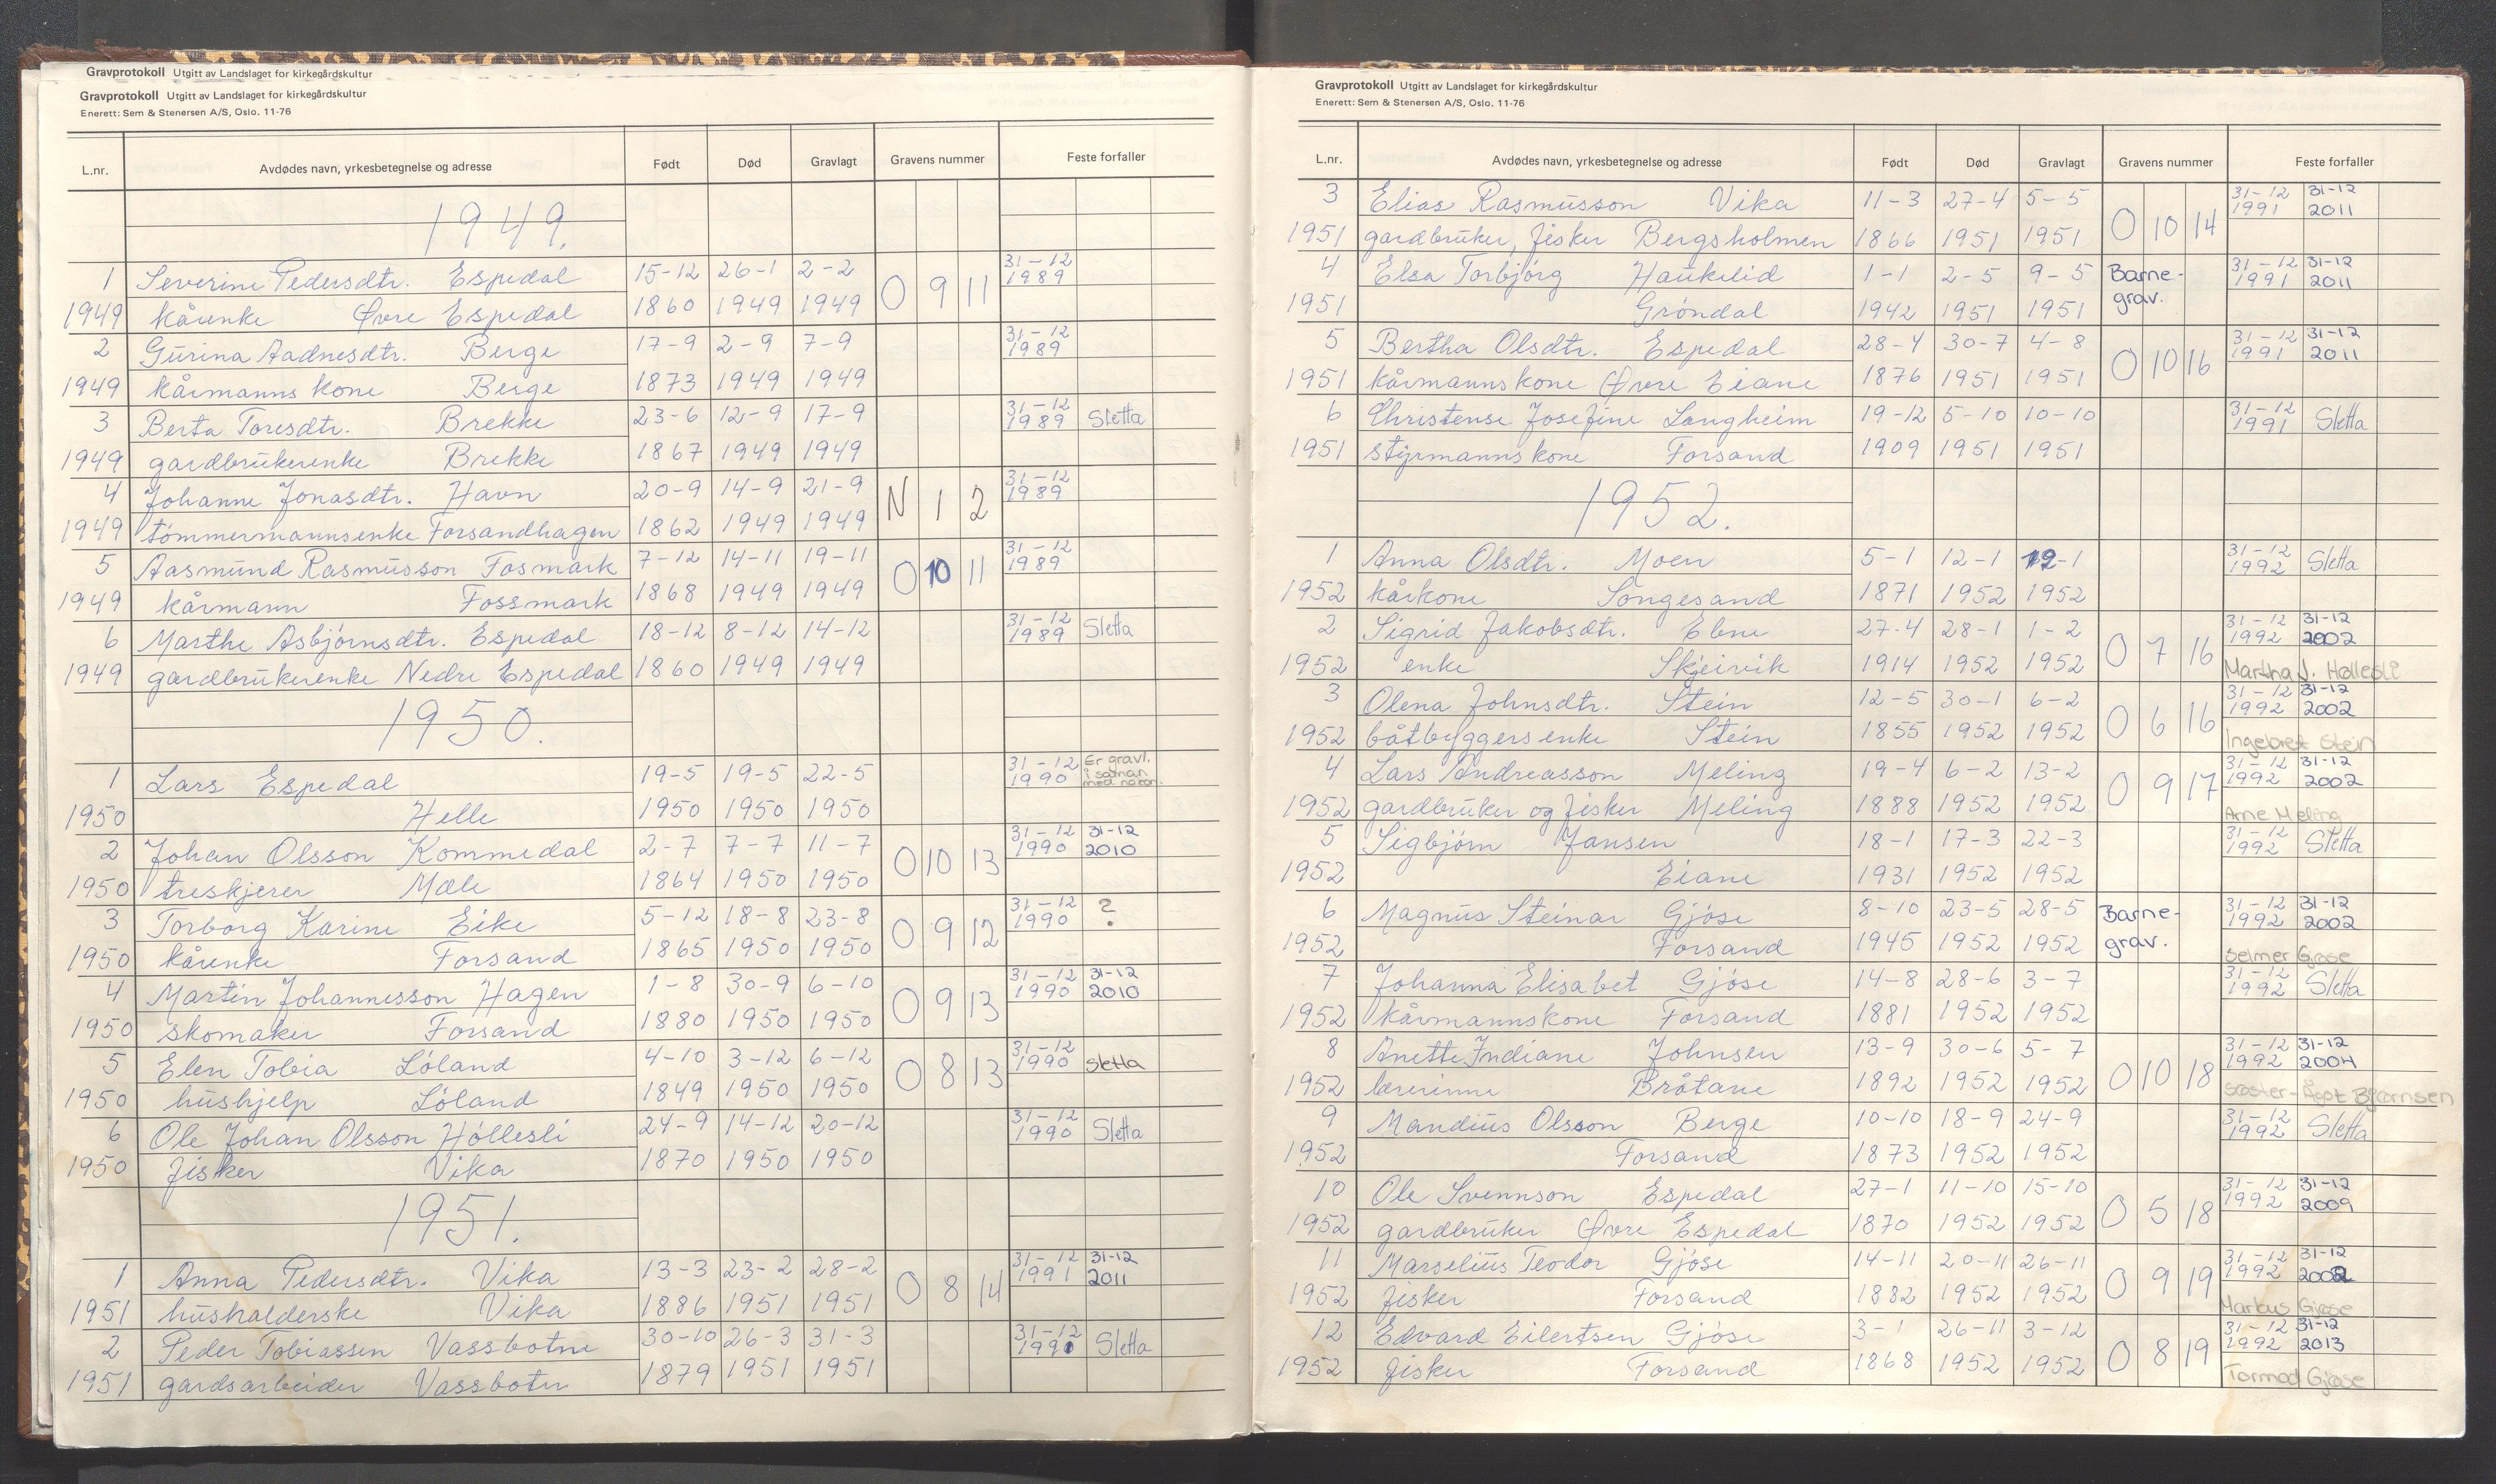 Gravprotokoll Utgitt av Landslaget for kirkegårdskultur
Gravprotokoll Utgitt av Landslaget for kirkegårdskultur
Enerett: Sem & Stenersen A/S, Oslo. 11-76
L.nr. Avdødes navn, yrkesbetegnelse og adresse Født Død Gravlagt Gravens nummer Feste forfaller
1949.
1 Severine Pedersdtr. Espedal 15-12 26-1 2-2 O 9 11 31-12 1989
1949 kårenke Øvre Espedal 1860 1949 1949
2 Gurina Aadnesdtr. Berge 17-9 2-9 7-9 31-12 1989
1949 kårmanns kone Berge 1873 1949 1949
3 Berta Toresdtr. Brekke 23-6 12-9 17-9 31-12 1989 Sletta
1949 gardbrukerenke Brekke 1867 1949 1949
4 Johanne Jonasdtr. Havn 20-9 14-9 21-9 N 1 2 31-12 1989
1949 tømmermannsenke Forsandhagen 1862 1949 1949
5 Aasmund Rasmusson Fosmark 7-12 14-11 19-11 O 10 11 31-12 1989
1949 kårmann Fossmark 1868 1949 1949
6 Marthe Asbjørnsdtr. Espedal 18-12 8-12 14-12 31-12 1989 Sletta
1949 gardbrukerenke Nedre Espedal 1860 1949 1949
1950.
1 Lars Espedal 19-5 19-5 22-5 31-12 1990 Er gravl. i saman med
1950 Helle 1950 1950 1950
2 Johan Olsson Kommedal 2-7 7-7 11-7 O 10 13 31-12 1990 31-12 2010
1950 treskjerer Mæle 1864 1950 1950
3 Torborg Karine Eike 5-12 18-8 23-8 O 9 12 31-12 1990 ?
1950 kårenke Forsand 1865 1950 1950
4 Martin Johannesson Hagen 1-8 30-9 6-10 O 9 13 31-12 1990 31-12 2010
1950 skomaker Forsand 1880 1950 1950
5 Elen Tobia Løland 4-10 3-12 6-12 O 8 13 31-12 1990 Sletta
1950 hushjelp Løland 1849 1950 1950
6 Ole Johan Olsson Høllesli 24-9 14-12 20-12 31-12 1990 Sletta
1950 fisker Vika 1870 1950 1950
1951.
1 Anna Pedersdtr. Vika 13-3 23-2 28-2 O 8 14 31-12 1991 31-12 2011
1951 husholderske Vika 1886 1951 1951
2 Peder Tobiassen Vassbotne 30-10 26-3 31-3 31-12 1991 Sletta
1951 gardsarbeider Vassbotn 1879 1951 1951
Gravprotokoll Utgitt av Landslaget for kirkegårdskultur
Enerett: Sem & Stenersen A/S, Oslo. 11-76
L.nr. Avdødes navn, yrkesbetegnelse og adresse Født Død Gravlagt Gravens nummer Feste forfaller
3 Elias Rasmusson Vika 11-3 27-4 5-5 O 10 14 31-12 1991 31-12 2011
1951 gardbruker, fisker Bergsholmen 1866 1951 1951
4 Elsa Torbjørg Haukelid 1-1 2-5 9-5 Barne- 31-12 1991 31-12 2011
1951 Grøndal 1942 1951 1951 grav.
5 Bertha Olsdtr. Espedal 28-4 30-7 4-8 O 10 16 31-12 1991 31-12 2011
1951 kårmanns kone Øvre Eiane 1876 1951 1951
6 Christense Josefine Langheim 19-12 5-10 10-10 31-12 1991 Sletta
1951 styrmanns kone Forsand 1909 1951 1951
1952.
1 Anna Olsdtr. Moen 5-1 12-1 19-1 31-12 1992 Sletta
1952 kårkone Songesand 1871 1952 1952
2 Sigrid Jakobsdtr. Ebne 27-4 28-1 1-2 O 7 16 31-12 1992 31-12 2002
1952 enke Skjeivik 1914 1952 1952 Martha J. Høllesli
3 Olena Johnsdtr. Stein 12-5 30-1 6-2 O 6 16 31-12 1992 31-12 2002
1952 båtbyggers enke Stein 1855 1952 1952 Ingebret Stein
4 Lars Andreasson Meling 19-4 6-2 13-2 O 9 17 31-12 1992 31-12 2002
1952 gardbruker og fisker Meling 1888 1952 1952 Arne Meling
5 Sigbjørn Jansen 18-1 17-3 22-3 31-12 1992 Sletta
1952 Eiane 1931 1952 1952
6 Magnus Steinar Gjøse 8-10 23-5 28-5 Barne- 31-12 1992 31-12 2002
1952 Forsand 1945 1952 1952 grav. Selmer Gjøse
7 Johanna Elisabet Gjøse 14-8 28-6 3-7 31-12 1992 Sletta
1952 kårmannskone Forsand 1881 1952 1952
8 Anette Indiane Johnsen 13-9 30-6 5-7 O 10 18 31-12 1992 31-12 2004
1952 lærerinne Bråtane 1892 1952 1952 søster- Bjørnsen
9 Mandius Olsson Berge 10-10 18-9 24-9 31-12 1992 Sletta
1952 Forsand 1873 1952 1952
10 Ole Svennson Espedal 27-1 11-10 15-10 O 5 18 31-12 1992 31-12 2009
1952 gardbruker Øvre Espedal 1870 1952 1952
11 Marselius Teodor Gjøse 14-11 20-11 26-11 O 9 19 31-12 1992 31-12 2002
1952 fisker Forsand 1882 1952 1952 Markus Gjøse
12 Edvard Eilertsen Gjøse 3-1 26-11 3-12 O 8 19 31-12 1992 31-12 2013
1952 fisker Forsand 1868 1952 1952 Tormod Gjøse